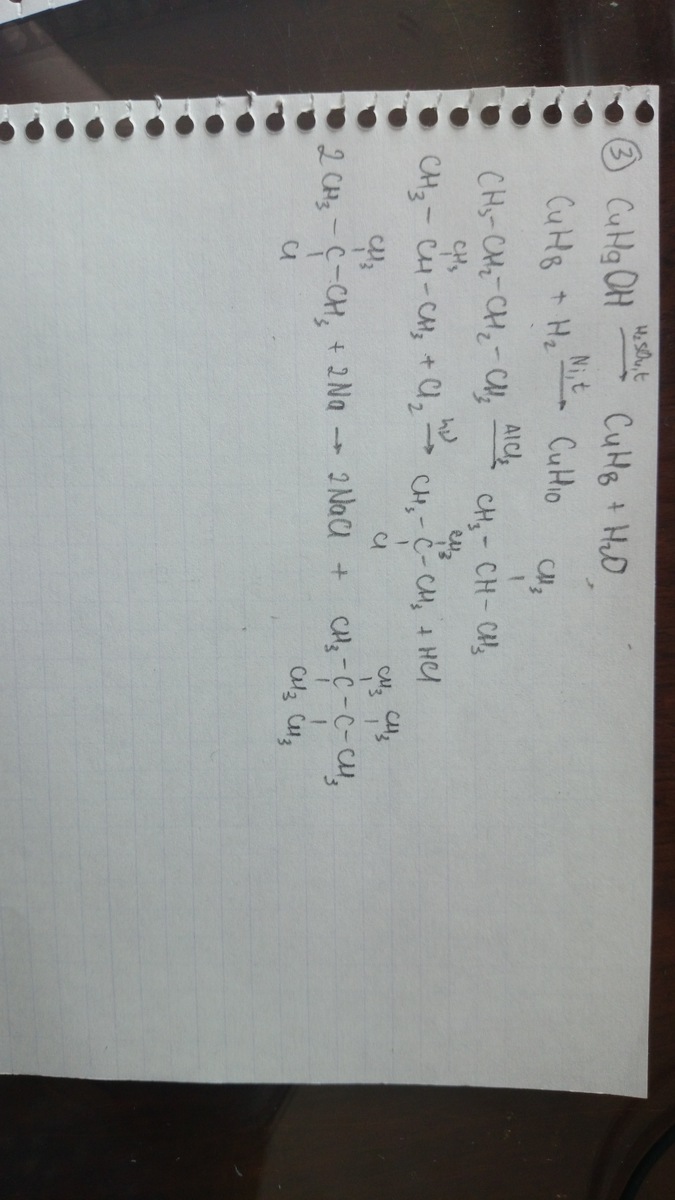 ③ C₄H₉OH —H₂SO₄,t→ C₄H₈ + H₂O
C₄H₈ + H₂ —Ni,t→ C₄H₁₀
CH₃
CH₃-CH₂-CH₂-CH₃ —AlCl₃→ CH₃-CH-CH₃
CH₃ CH₃
CH₃-CH-CH₃ + Cl₂ —hν→ CH₃-C-CH₃ + HCl
Cl
CH₃ CH₃ CH₃
2CH₃-C-CH₃ + 2Na → 2NaCl + CH₃-C-C-CH₃
Cl CH₃ CH₃